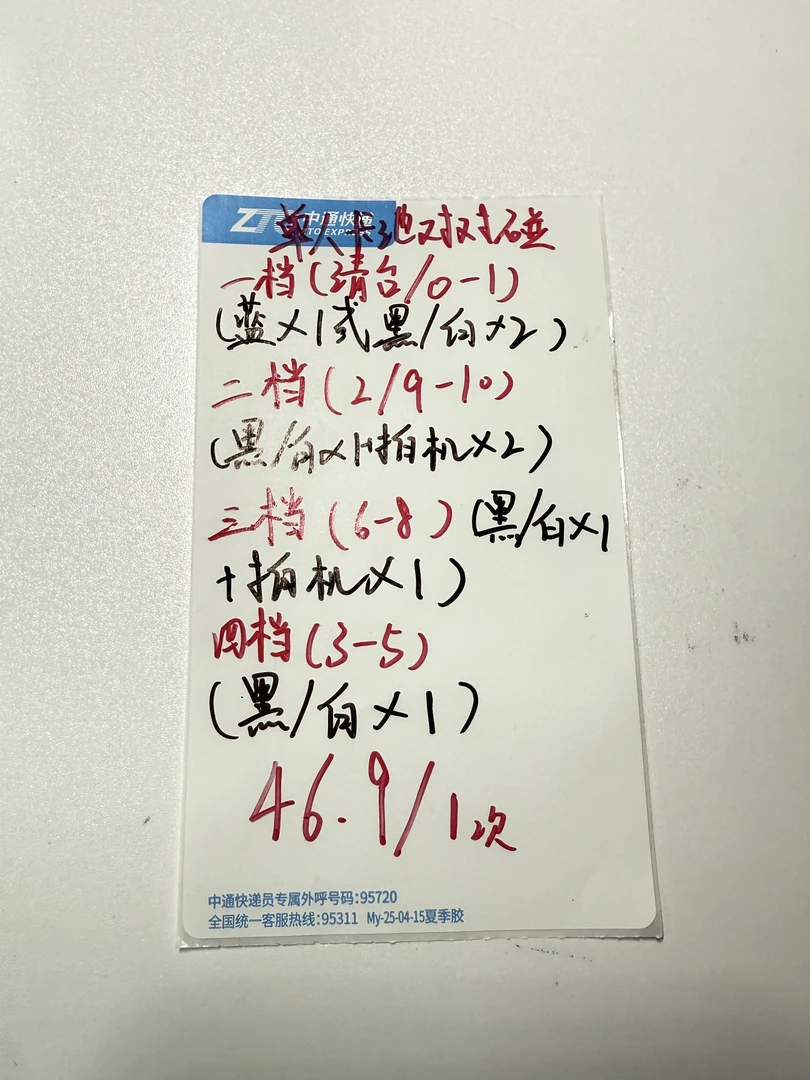 ZTO 中通快递
ZTO EXPRESS
单人卡池对对碰
一档(清台/0-1)
(蓝×1或黑/白×2)
二档(2/9-10)
(黑/白×1+拍机×2)
三档(6-8)(黑/白×1
+拍机×1)
四档(3-5)
(黑/白×1)
46.9/1次
中通快递员专属外呼号码:95720
全国统一客服热线:95311 My-25-04-15夏季胶